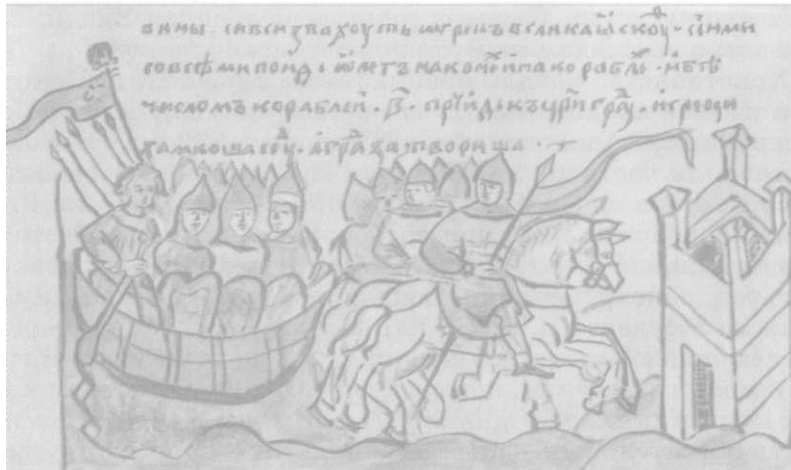 вины · си вси звахоуть ѿ грекъ великаꙗ скоуⷴ · сими
со всѣми поиде ѡлегъ на конеⷯ и на кораблеⷯ · и бѣ
числомъ кораблеи · в҃ · прїиде къ цр҃юграⷣ · и греци
замкоша соуⷣ · а граⷣ затвориша ·